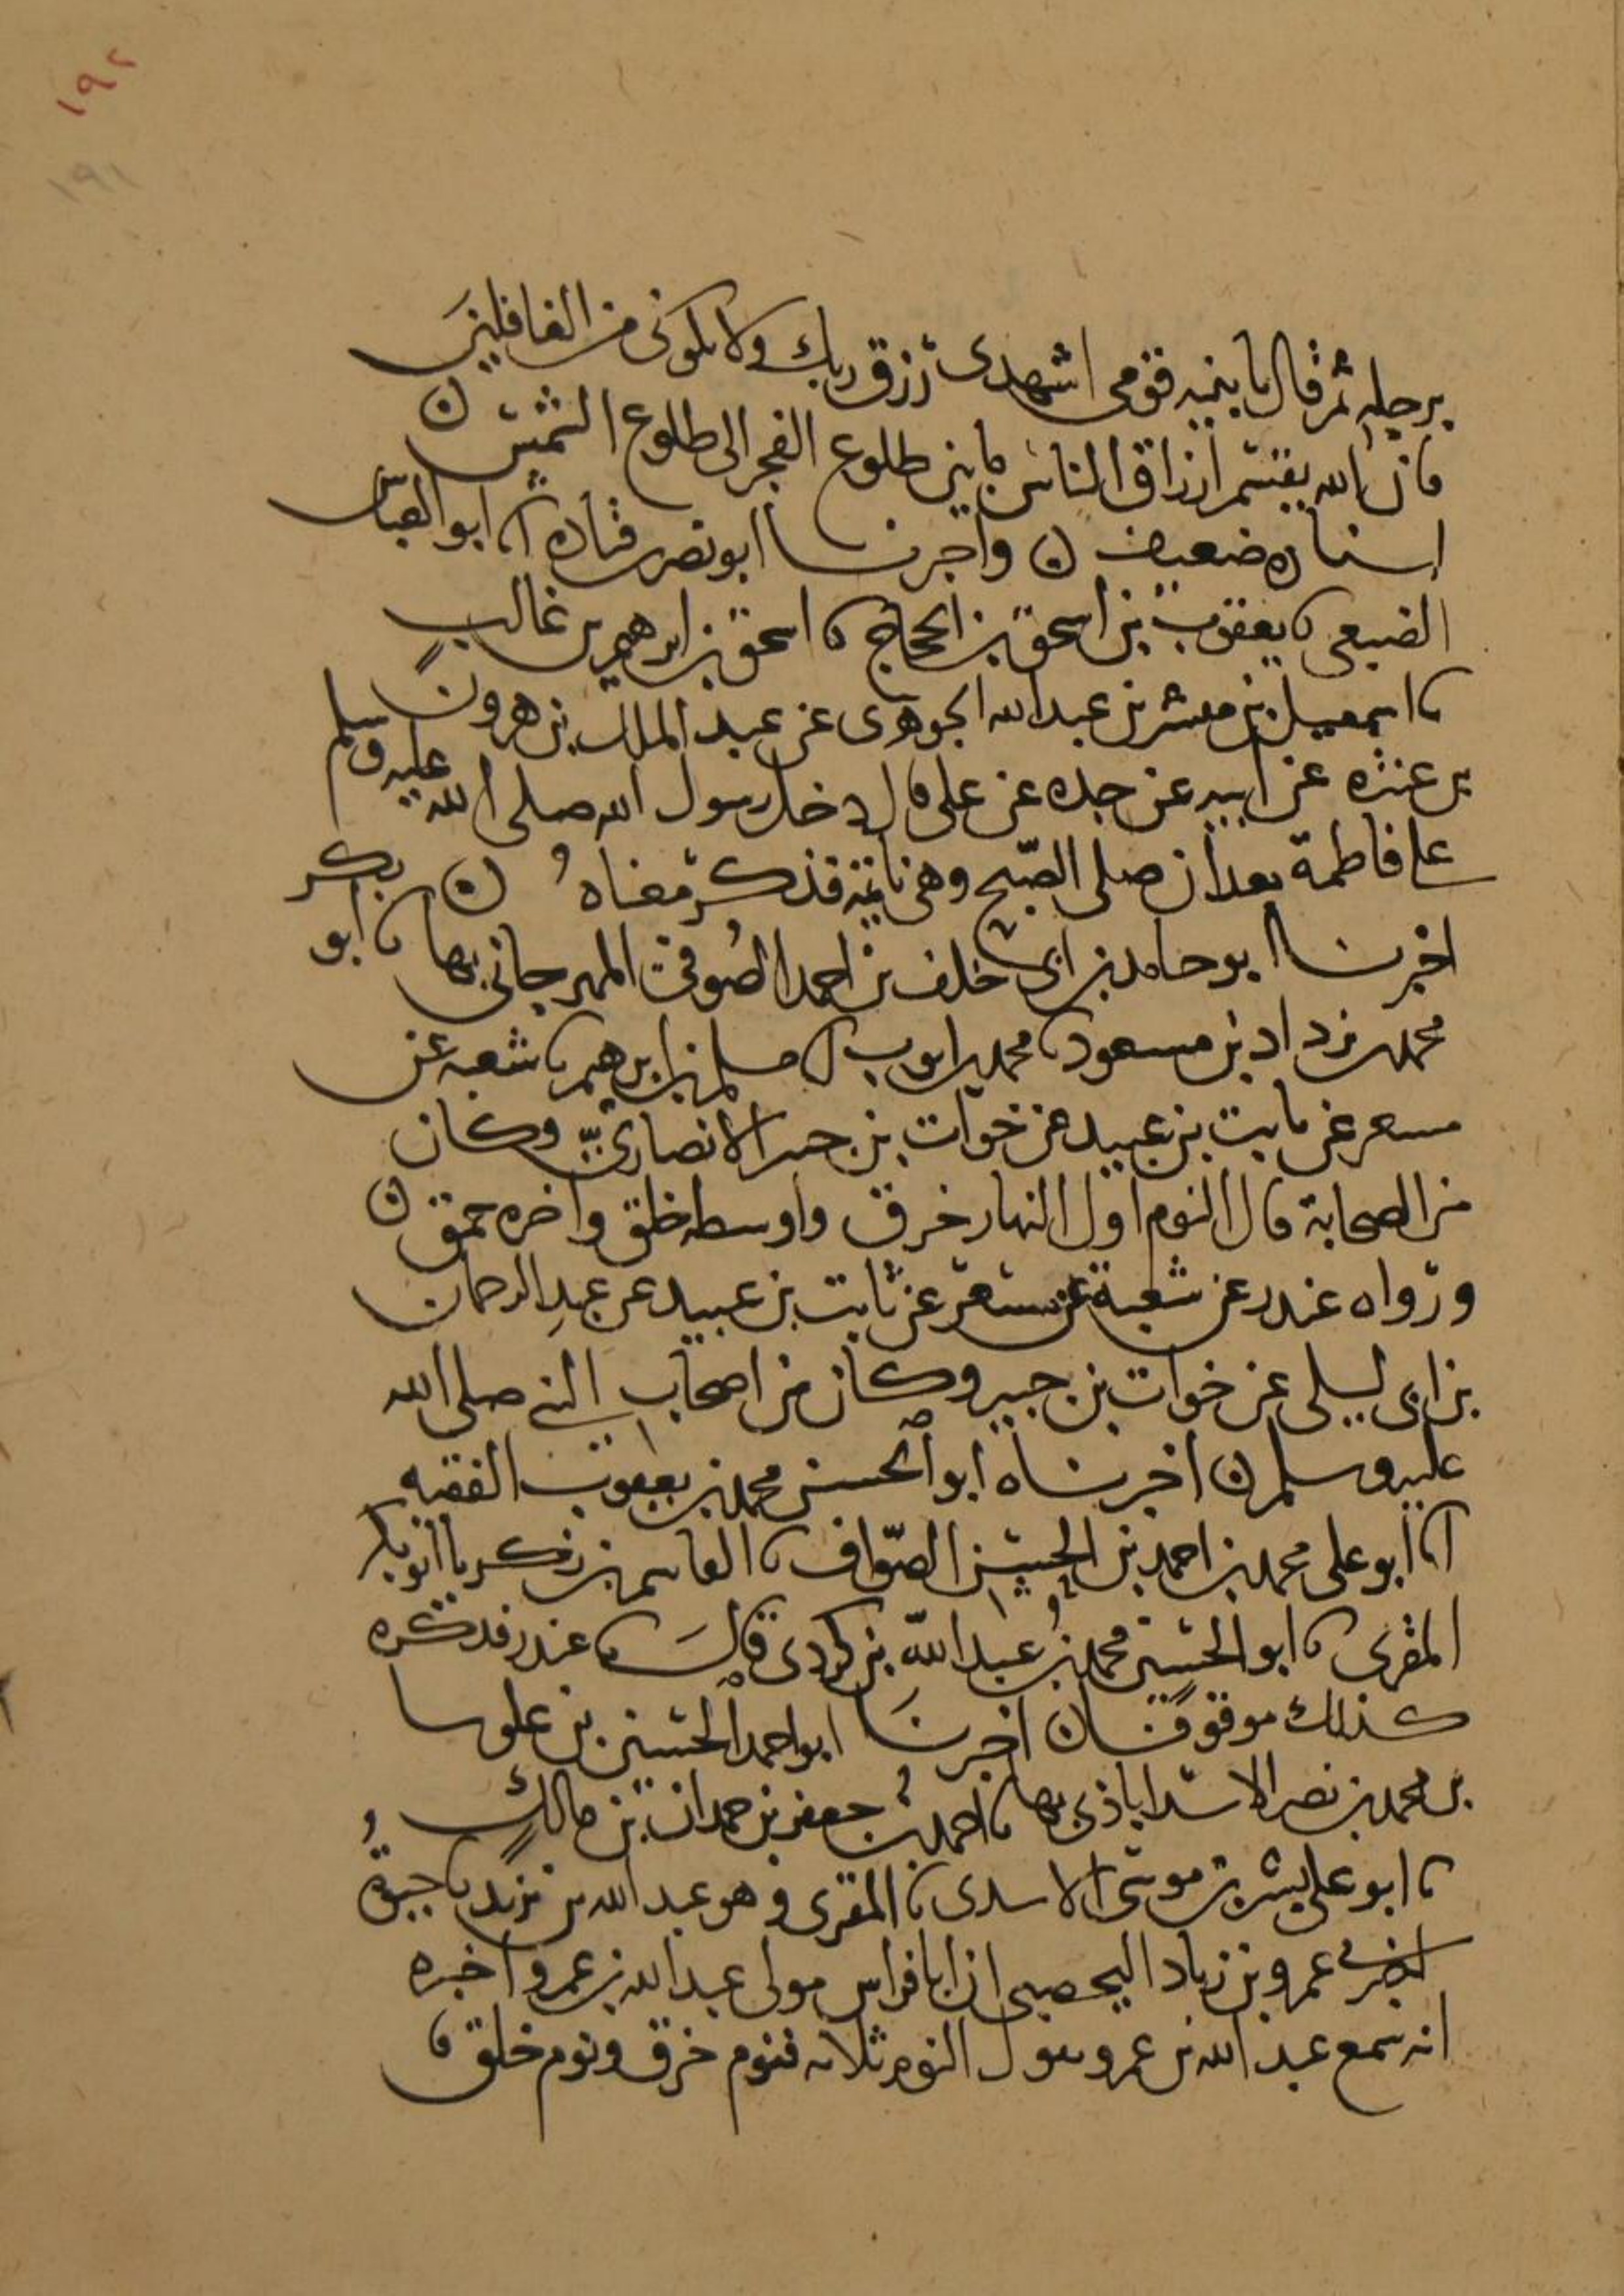 ١٩٢
١٩١
برجله ثم قال يا بنيه قومى اشهدى رزق ربك ولا تكونى من الغافلين
فان الله يقسم ارزاق الناس ما بين طلوع الفجر الى طلوع الشمس ن
اسناده ضعيف ن واخبرنا ابو نصر بن قتادة انا ابو العباس
الضبعى نا يعقوب بن اسحق بن الحجاج نا اسحق بن ابرهيم بن غالب
نا اسمعيل بن مبشر بن عبد الله الجوهرى عن عبد الملك بن هرون
بن عنتره عن ابيه عن جده عن على قال دخل رسول الله صلى الله عليه وسلم
على فاطمة بعد ان صلى الصبح وهى نائمة فذكر معناه ن
اخبرنا ابو حامد بن ابى خلف بن احمد الصوفى المهرجانى بها نا ابو بكر
محمد بن يزداد بن مسعود نا محمد بن ايوب انا مسلم بن ابرهيم نا شعبه عن
مسعر عن ثابت بن عبيد عن خوات بن جبير الانصارى وكان
من الصحابة قال النوم اول النهار خرق واوسطه خلق واخره حمق ن
ورواه غندر عن شعبة عن مسعر عن ثابت بن عبيد عن عبد الرحمان
بن ابى ليلى عن خوات بن جبير وكان من اصحاب النبى صلى الله
عليه وسلم ن اخبرناه ابو الحسن محمد بن يعقوب الفقيه
انا ابو على محمد بن احمد بن الحسن الصواف نا القاسم بن زكريا ابو بكر
المقرى نا ابو الحسين محمد بن عبد الله بن كردى قال نا غندر فذكره
كذلك موقوفا ن اخبرنا ابو احمد الحسين بن علوسا
بن محمد بن نصر الاسداباذى بها نا احمد بن جعفر بن حمدان بن مالك
نا ابو على بشر بن موسى الاسدى نا المقرى وهو عبد الله بن يزيد نا حيوة
اخبرنى عمرو بن زياد اليحصبى ان ابا فراس مولى عبد الله بن عمرو اخبره
انه سمع عبد الله بن عمرو يقول النوم ثلاثه فنوم خرق ونوم خلق